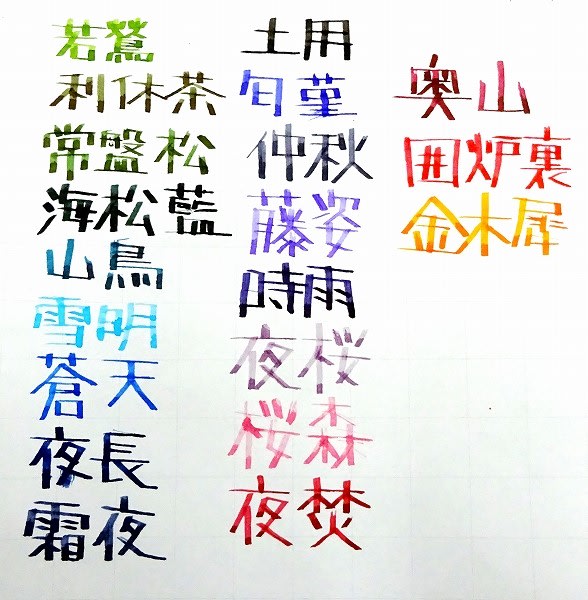 若鶯
利休茶
常盤松
海松藍
山鳥
雪明
蒼天
夜長
霜夜
土用
旬菫
仲秋
藤姿
時雨
夜桜
桜森
夜焚
奥山
囲炉裏
金木犀